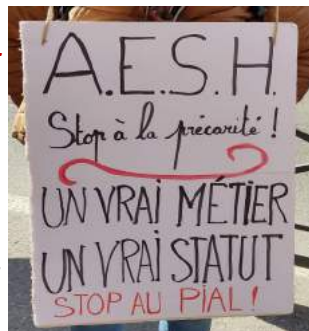 A.E.S.H.
Stop à la précarité !
UN VRAI MÉTIER
UN VRAI STATUT
STOP AU PIAL !